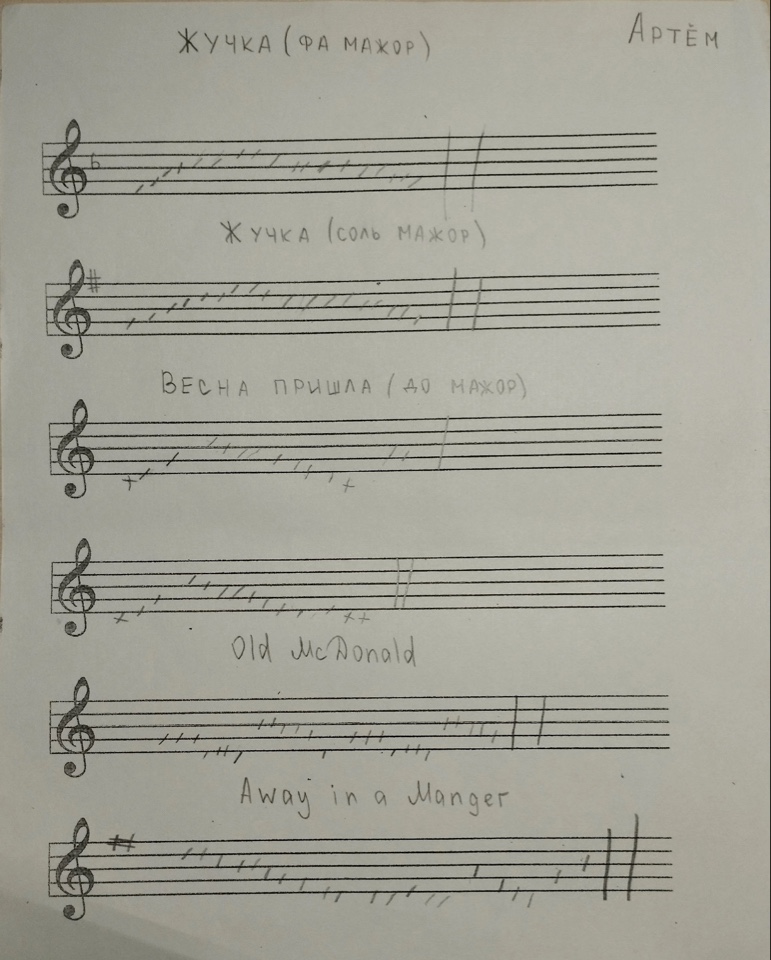 Артём
Жучка (фа мажор)
Жучка (соль мажор)
Весна пришла (до мажор)
Old McDonald
Away in a Manger